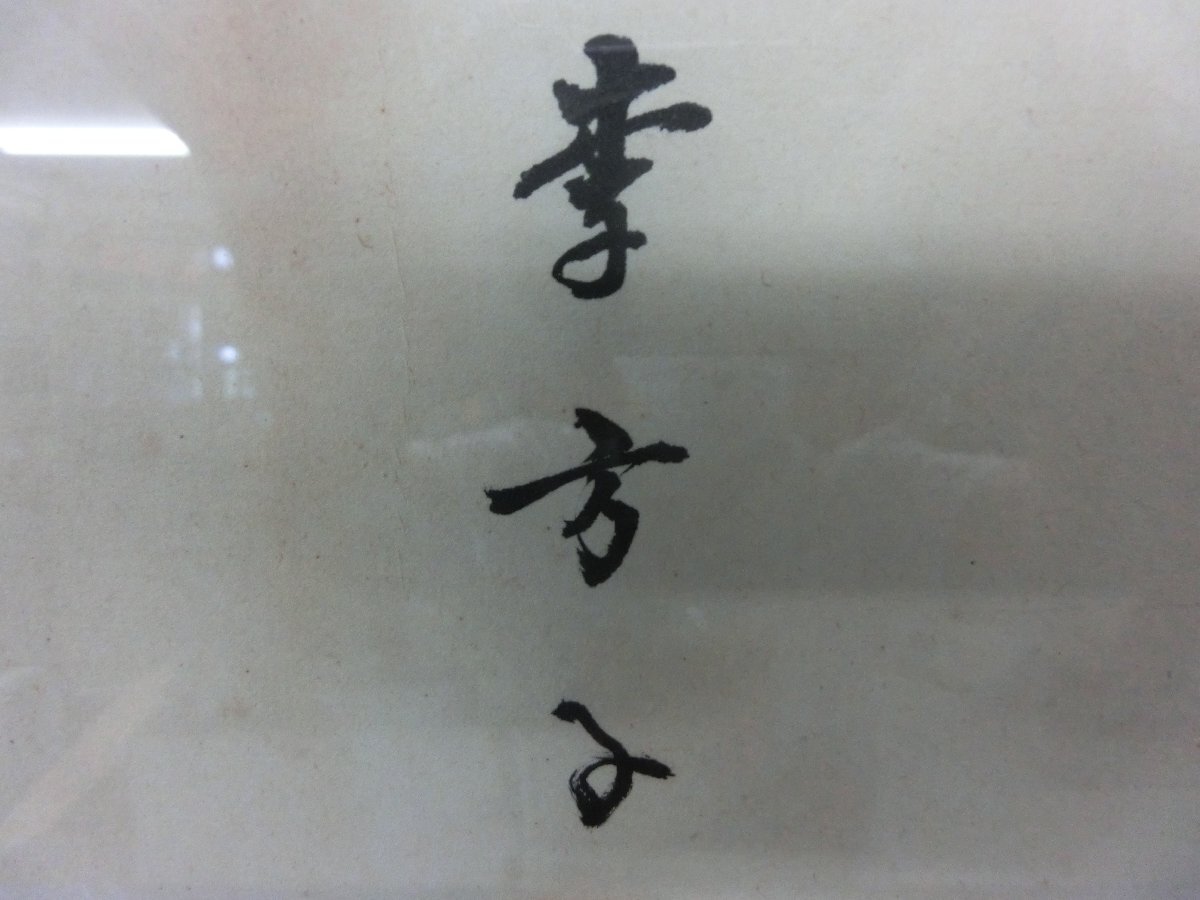 李方子